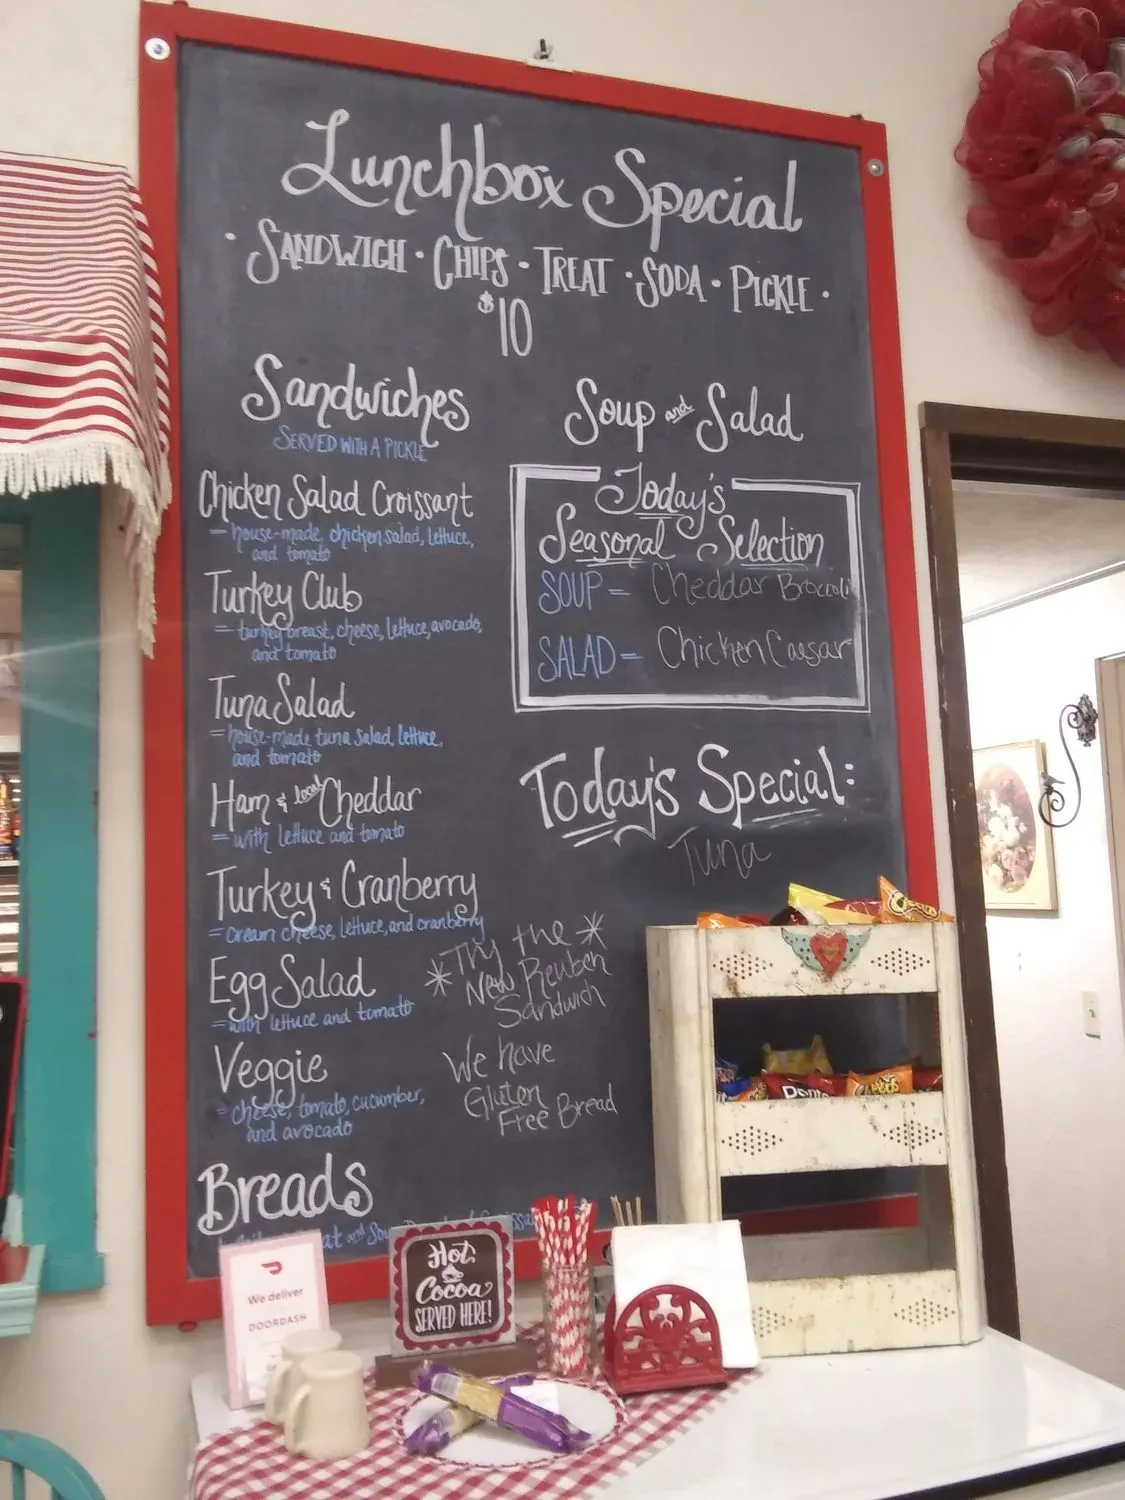 Lunchbox Special
· Sandwich · Chips · Treat · Soda · Pickle ·
$10
Sandwiches
Served with a pickle
Chicken Salad Croissant
= house-made chicken salad, lettuce,
and tomato
Turkey Club
= turkey breast, cheese, lettuce, avocado,
and tomato
Tuna Salad
= house-made tuna salad, lettuce,
and tomato
Ham & local Cheddar
= with lettuce and tomato
Turkey & Cranberry
= cream cheese, lettuce, and cranberry
Egg Salad
= with lettuce and tomato
Veggie
= cheese, tomato, cucumber,
and avocado
Breads
and
Soup and Salad
Today's
Seasonal Selection
SOUP = Cheddar Broccoli
SALAD = Chicken Caesar
Today's Special:
Tuna
* Try the *
New Reuben
Sandwich
We have
Gluten
Free Bread
We deliver
DOORDASH
Hot
Cocoa
SERVED HERE!